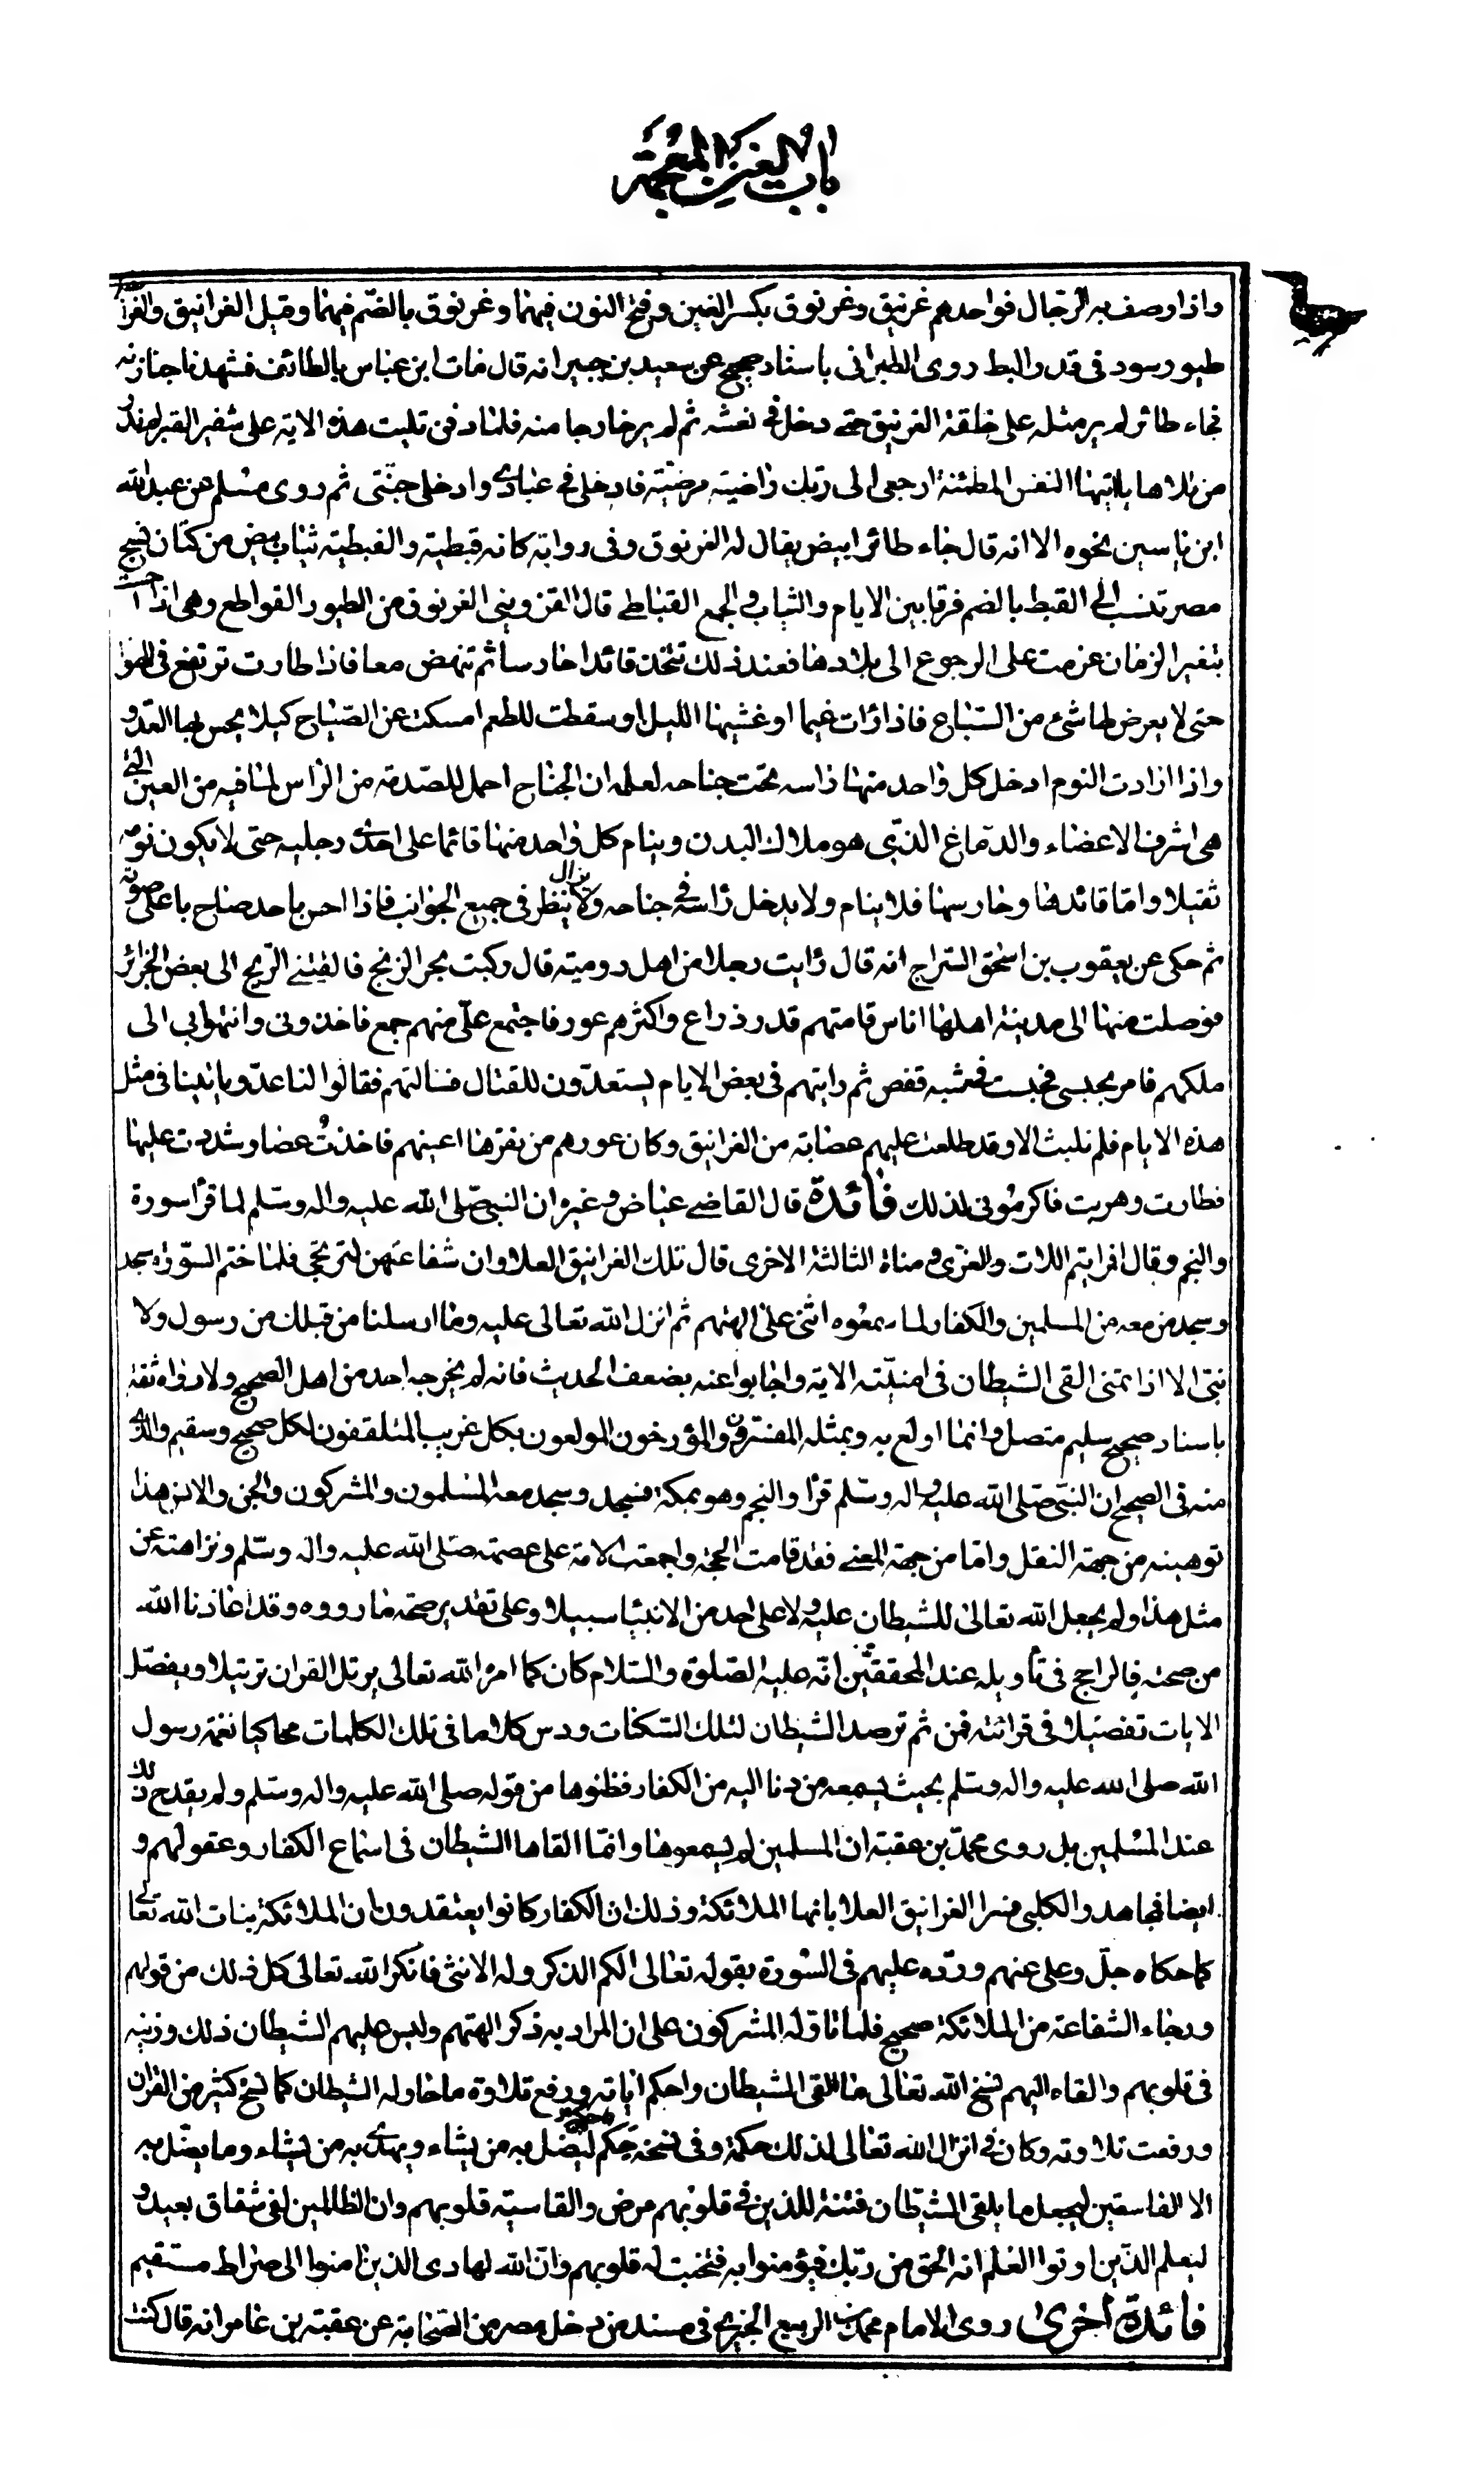 باب الغين المعجمة
واذا وصف به الرجال فواحدهم غرنيق وغرنوق بكسر الغين وفتح النون فيهما وغرنوق بالضم فيهما وقيل الغرانيق والغرانقة
طيور سود في قدر البط روى الطبراني باسناد صحيح عن سعيد بن جبير انه قال مات ابن عباس بالطائف فشهدنا جنازته
فجاء طائر لم ير مثله على خلقة الغرنيق حتى دخل في نعشه ثم لم ير خارجا منه فلما دفن تليت هذه الاية على شفير القبر لم ندر
من تلاها يا ايتها النفس المطمئنة ارجعي الى ربك راضية مرضية فادخلي في عبادي وادخلي جنتي ثم روى مسلم عن عبد الله
ابن ياسين نحوه الا انه قال جاء طائر ابيض يقال له الغرنوق وفي رواية كانه قبطية والقبطية ثياب بيض من كتان تنسج
مصر تنسب الى القبط بالضم فرقا بين الايام والثياب والجمع القباطي قال القزويني الغرنوق من الطيور القواطع وهي اذا احست
بتغير الزمان عزمت على الرجوع الى بلادها فعند ذلك تتخذ قائدا حارسا ثم تنهض معا فاذا طارت ترتفع في الهوا
حتى لا يعرض لها شيء من السباع فاذا رات غيما او غشيها الليل او سقطت للطعم امسكت عن الصياح كيلا يحس بها العدو
واذا ارادت النوم ادخل كل واحد منها راسه تحت جناحه لعلمه ان الجناح احمل للصدمة من الراس لما فيه من العين التي
هي اشرف الاعضاء والدماغ الذي هو ملاك البدن وينام كل واحد منها قائما على احدى رجليه حتى لا يكون نومه
ثقيلا واما قائدها وحارسها فلا ينام ولا يدخل راسه في جناحه ولا يزال ينظر في جميع الجوانب فاذا احس باحد صاح باعلى صوته
ثم حكى عن يعقوب بن اسحق السراج انه قال رايت رجلا من اهل رومية قال ركبت بحر الزنج فالقتني الريح الى بعض الجزائر
فوصلت منها الى مدينة اهلها اناس قامتهم قدر ذراع واكثرهم عور فاجتمع علي منهم جمع فاخذوني وانتهوا بي الى
ملكهم فامر بحبسي فحبست في شبه قفص ثم رايتهم في بعض الايام يستعدون للقتال فسالتهم فقالوا لنا عدو ياتينا في مثل
هذه الايام فلم نلبث الا وقد طلعت عليهم عصابة من الغرانيق وكان عورهم من نقرها اعينهم فاخذت عصا وشددت عليها
فطارت وهربت فاكرموني لذلك فائدة قال القاضي عياض وغيره ان النبي صلى الله عليه واله وسلم لما قرأ سورة
والنجم وقال افرايتم اللات والعزى ومناة الثالثة الاخرى قال تلك الغرانيق العلا وان شفاعتهن لترتجى فلما ختم السورة سجد
وسجد من معه من المسلمين والكفار لما سمعوه اثنى على الهتهم ثم انزل الله تعالى عليه وما ارسلنا من قبلك من رسول ولا
نبي الا اذا تمنى القى الشيطان في امنيته الاية واجابوا عنه بضعف الحديث فانه لم يخرجه احد من اهل الصحيح ولا رواه ثقة
باسناد صحيح سليم متصل وانما اولع به وبمثله المفسرون والمؤرخون المولعون بكل غريب المتلقفون لكل صحيح وسقيم والذي
منه في الصحيح ان النبي صلى الله عليه واله وسلم قرأ والنجم وهو بمكة فسجد وسجد معه المسلمون والمشركون والجن والانس هذا
توهينه من جهة النقل واما من جهة المعنى فقد قامت الحجة واجمعت الامة على عصمته صلى الله عليه واله وسلم ونزاهته عن
مثل هذا ولم يجعل الله تعالى للشيطان عليه ولا على احد من الانبيا سبيلا وعلى تقدير صحة ما رووه وقد اعاذنا الله
من صحته فالراجح في تأويله عند المحققين انه عليه الصلوة والسلام كان كما امره الله تعالى يرتل القران ترتيلا ويفصل
الايات تفصيلا في قرائته فمن ثم ترصد الشيطان لتلك السكنات ودس كلاما في تلك الكلمات محاكيا نغمة رسول
الله صلى الله عليه واله وسلم بحيث يسمعه من دنا اليه من الكفار فظنوها من قوله صلى الله عليه واله وسلم ولم يقدح ذلك
عند المسلمين بل روى محمد بن عقبة ان المسلمين لم يسمعوها وانما القاها الشيطان في اسماع الكفار وعقولهم و
ايضا فمجاهد والكلبي فسرا الغرانيق العلا بانها الملائكة وذلك ان الكفار كانوا يعتقدون ان الملائكة بنات الله تعالى
كما حكاه جل وعلى عنهم ورده عليهم في السورة بقوله تعالى الكم الذكر وله الانثى فانكر الله تعالى كل ذلك من قولهم
ورجاء الشفاعة من الملائكة صحيح فلما تاوله المشركون على ان المراد به ذكر الهتهم ولبس عليهم الشيطان ذلك وزينه
في قلوبهم والقاه اليهم نسخ الله تعالى ما القى الشيطان واحكم اياته ورفع تلاوة ما حاوله الشيطان كما نسخ كثير من القران
ورفعت تلاوته وكان في انزال الله تعالى لذلك حكمة وفي نسخه حكم ليضل به من يشاء ويهدي به من يشاء وما يضل به
الا الفاسقين ليجعل ما يلقي الشيطان فتنة للذين في قلوبهم مرض والقاسية قلوبهم وان الظالمين لفي شقاق بعيد و
ليعلم الذين اوتوا العلم انه الحق من ربك فيؤمنوا به فتخبت له قلوبهم وان الله لهادي الذين امنوا الى صراط مستقيم
فائدة اخرى روى الامام محمد بن الربيع الجيزي في مسند من دخل مصر من الصحابة عن عقبة بن عامر انه قال كنت